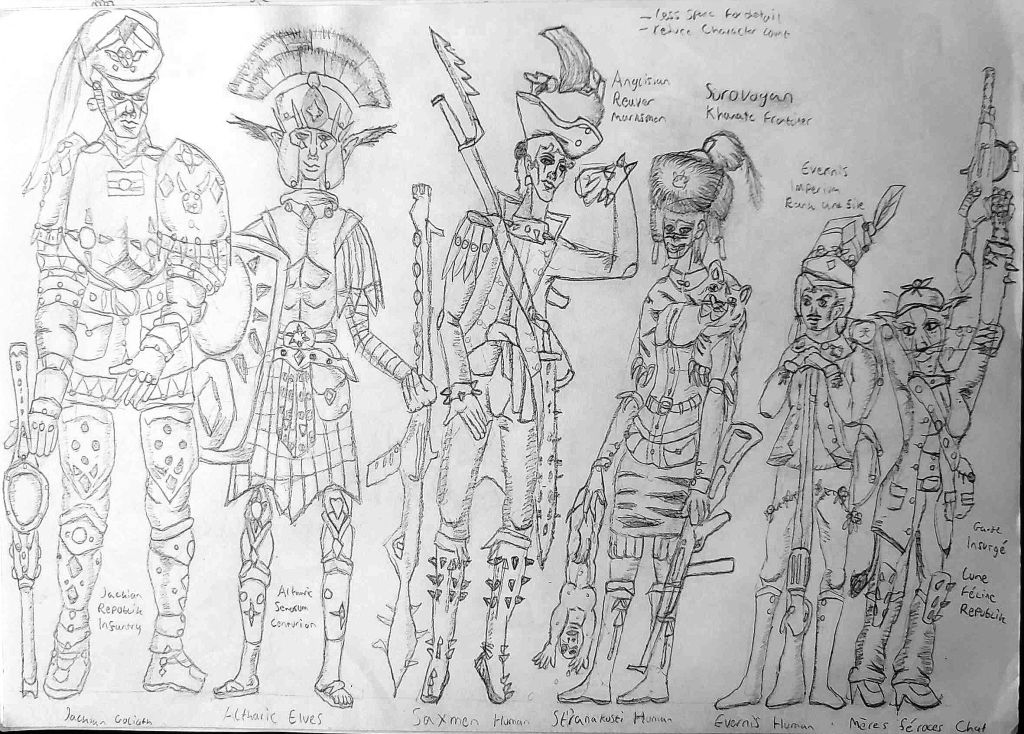 - less space for detail
- reduce character count
Anglisian
Reaver
Marksmen
Surovoyan
Kharate Frontuer
Evernis
Imperium
Jachian
Republik
Infantry
Altharic
Senatum
Centurion
Garde
Insurgé
Lune
Féline
Republik
Jachian Goliath
Altharic Elves
Saxmen Human
Human
Evernis Human
Mères féroces Chat